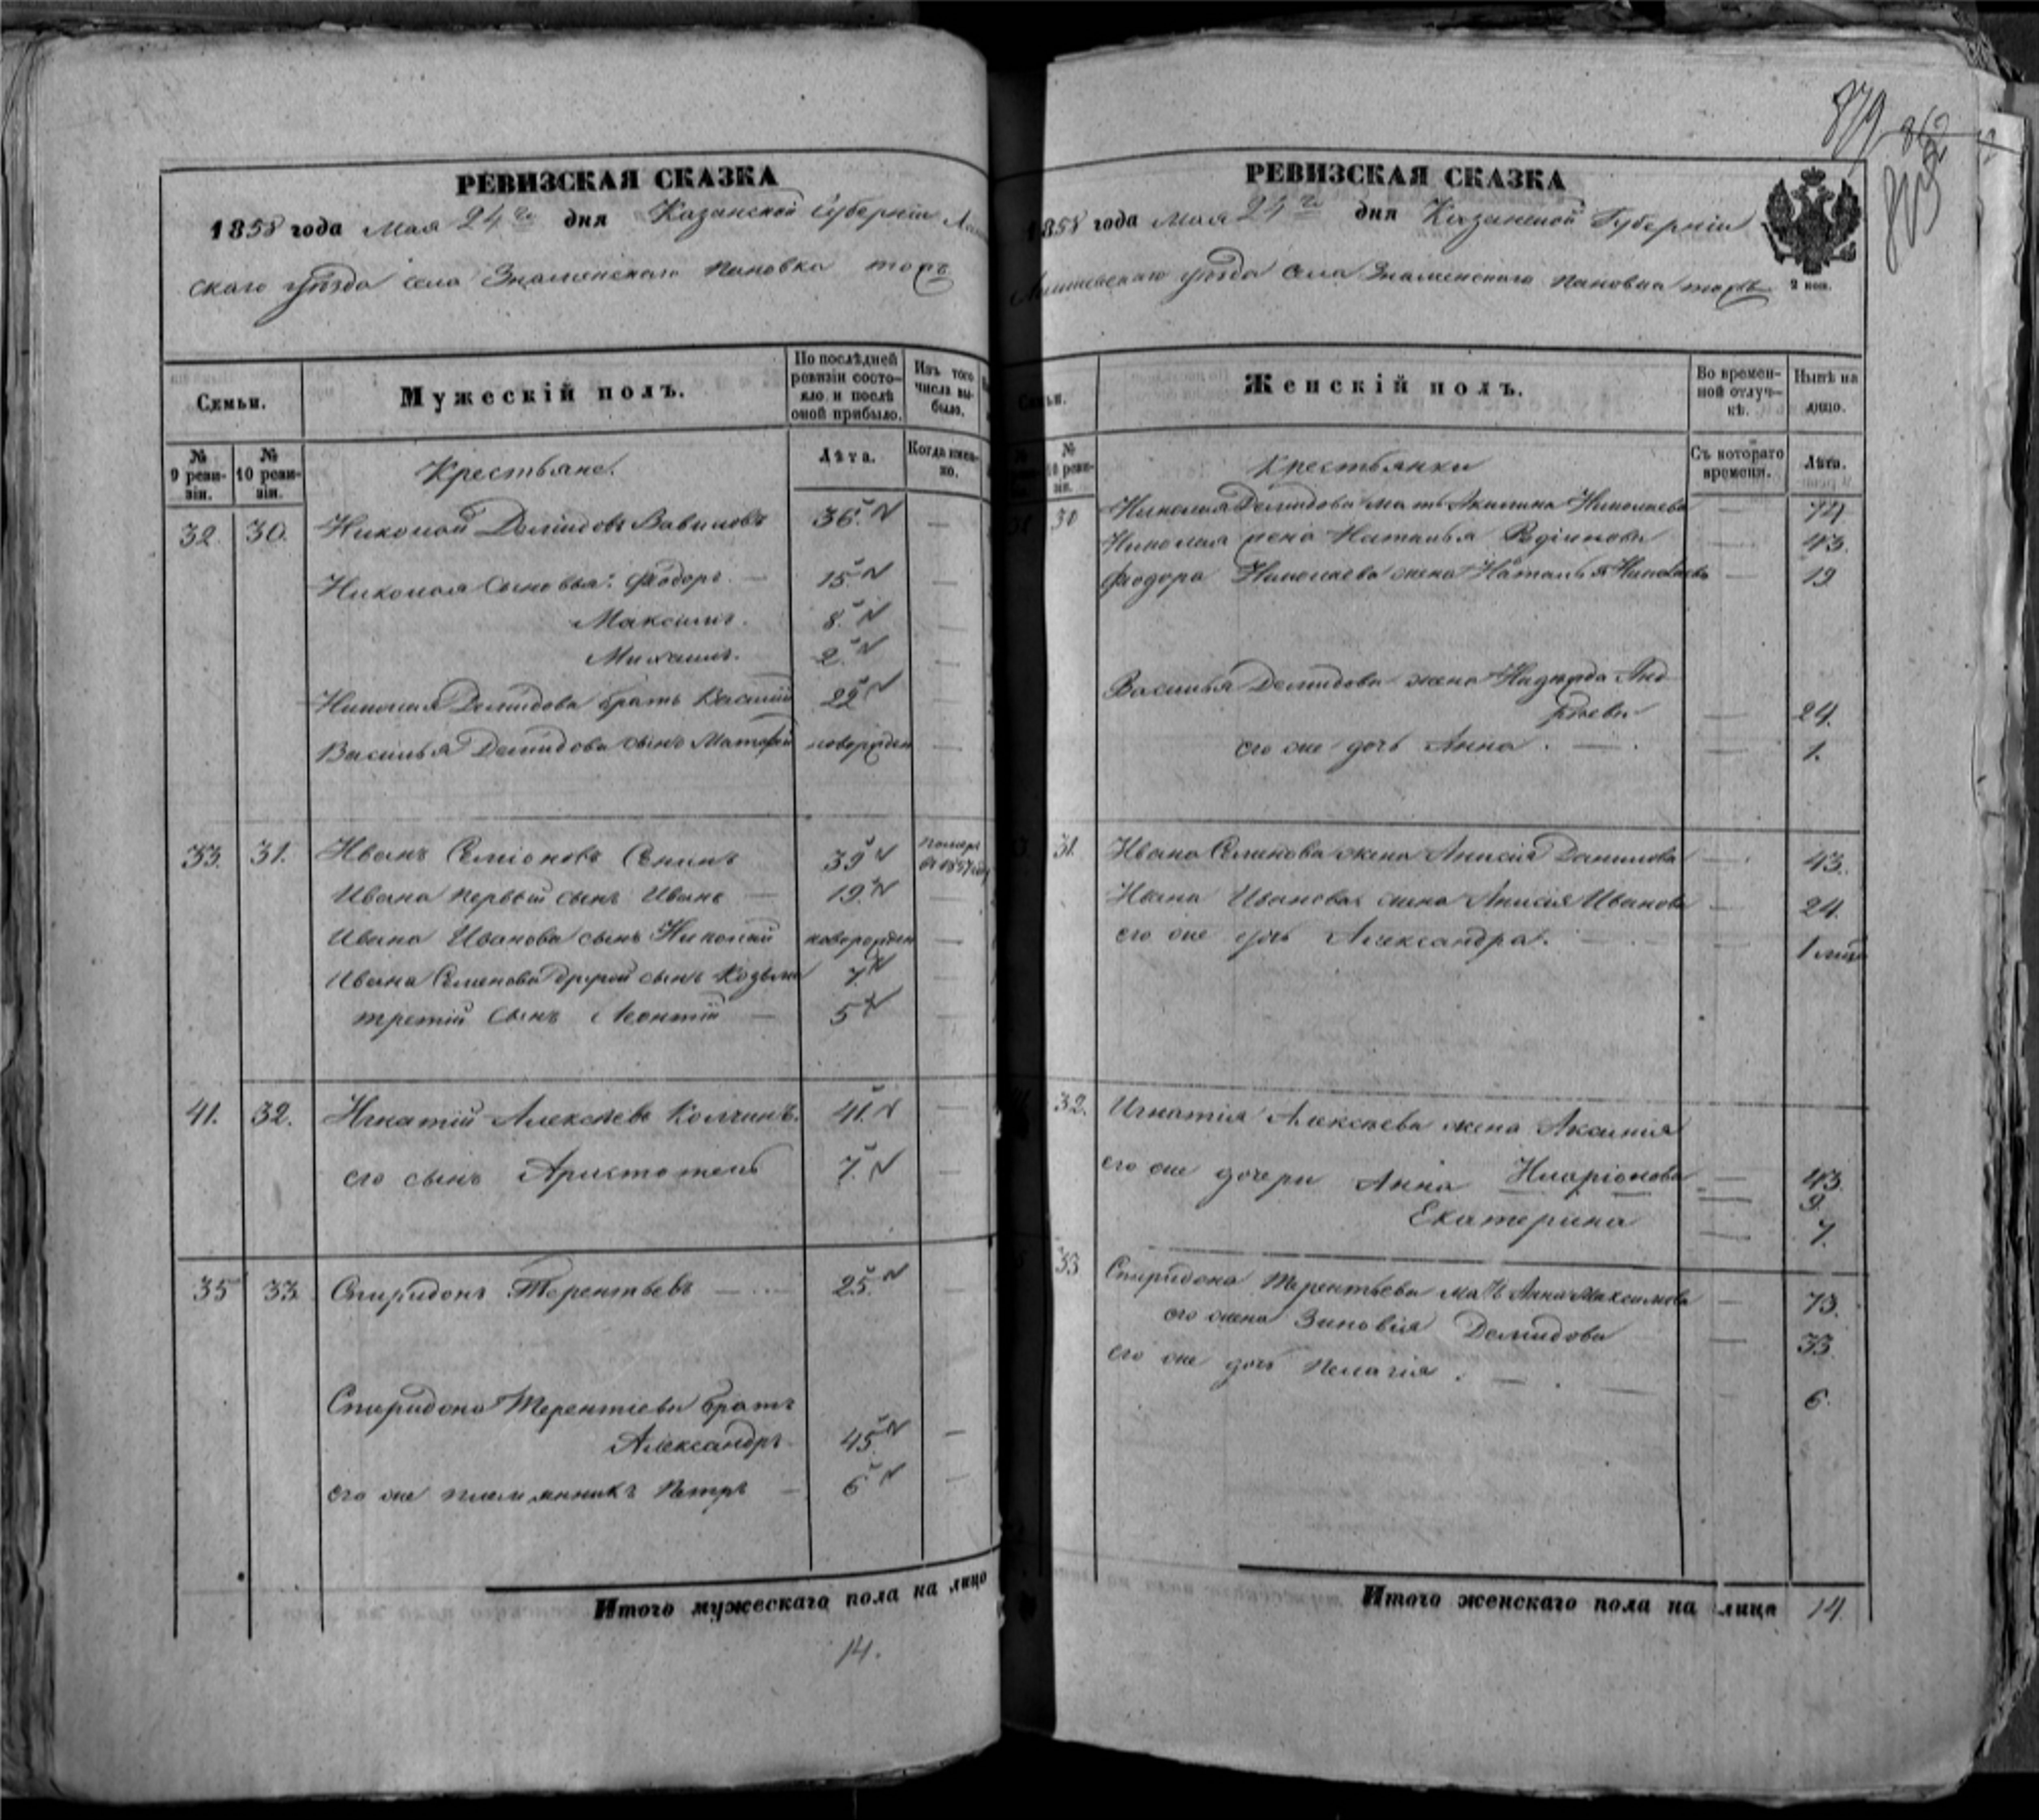 РЕВИЗСКАЯ СКАЗКА
1858 года Мая 24го дня Казанской Губерніи
скаго уѣзда села Знаменскаго Пановка тожъ
Семьи.
Мужескій полъ.
По послѣдней ревизіи состояло и послѣ оной прибыло.
Изъ того числа выбыло.
№ 9 ревизіи.
№ 10 ревизіи.
Лѣта.
Когда именно.
Крестьяне.
32. 30. Николай Демидовъ Вавиловъ 36. —
Николая сыновья: Ѳедоръ — 15. —
Максимъ. 8. —
Михаилъ. 2. —
Николая Демидова братъ Василій 22 —
Василья Демидова сынъ Матвѣй новорожден —
33. 31. Иванъ Семіоновъ Сенинъ 39
Ивана первый сынъ Иванъ — 19. —
Ивана Иванова сынъ Николай новорожден —
Ивана Семенова другой сынъ Козьма 7. —
третій сынъ Леонтій — 5 —
41. 32. Игнатій Алексѣевъ Колчинъ. 41. —
его сынъ Аристотель 7. —
35 33 Спиридонъ Терентьевъ — 25. —
Спиридона Терентіева братъ
Александръ 45. —
его же племянникъ Петръ — 6 —
Итого мужескаго пола на лицо
14.
РЕВИЗСКАЯ СКАЗКА
1858 года мая 24го дня Казанской Губерніи
уѣзда села Знаменскаго Пановка тожъ
2 коп.
Женскій полъ.
Во временной отлучкѣ.
Нынѣ на лицо.
№ 10 ревизіи.
Съ котораго времени.
Лѣта.
Крестьянки
30 Николая Демидова мать Акилина Николаева —
Николая жена Наталья Родіонова — 43.
Ѳедора Николаева жена Наталья Николаева — 19
Василья Демидова жена Надежда Анд
реева — 24.
его же дочь Анна. — 1.
31. Ивана Семенова жена Анисія Данилова — 43.
Ивана Иванова жена Анисія Иванова — 24.
его же дочь Александра. — 1
32. Игнатія Алексѣева жена Аксинія
Иларіонова — 43.
его же дочери Анна — 9.
Екатерина — 7.
33 Спиридона Терентьева мать Анна Максимова — 73.
его жена Зиновія Демидова — 33.
его же дочь Пелагія. — 6.
Итого женскаго пола на лицо 14.